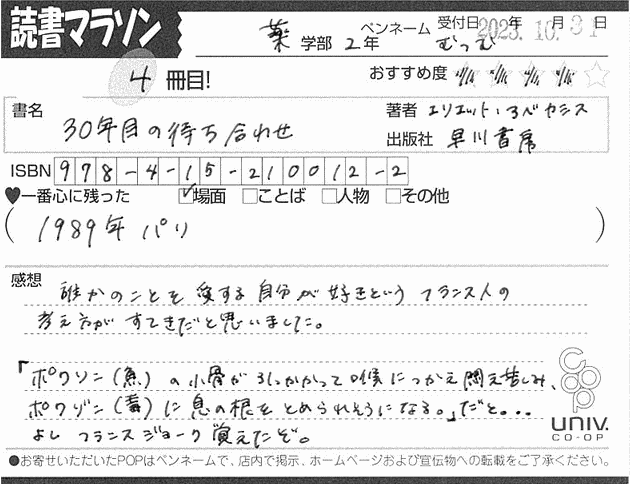 読書マラソン
薬 学部 2年 ペンネーム むつむ 受付日 2023年 10月 31日
4 冊目! おすすめ度 ★★★★☆
書名 30年目の待ち合わせ
著者 エリエット・アベカシス
出版社 早川書房
ISBN 978-4-15-210012-2
♥一番心に残った ☑場面 □ことば □人物 □その他
(1989年 パリ)
感想
誰かのことを愛する自分が好きという フランス人の
考え方がすてきだと思いました。
「ポワソン(魚)の小骨が引っかかって喉につかえ悶え苦しみ、
ポワゾン(毒)に息の根をとめられそうになる。」だと...
よし フランスジョーク 覚えたぞ。
coop
UNIV.
CO-OP
●お寄せいただいたPOPはペンネームで、店内で掲示、ホームページおよび宣伝物への転載をご了承ください。